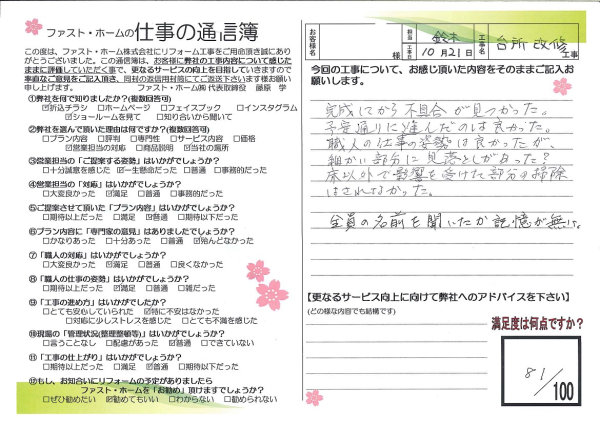 ファスト・ホームの仕事の通信簿
この度は、ファスト・ホーム株式会社にリフォーム工事をご用命頂き誠にありがとうございました。この通信簿は、お客様に弊社の工事内容について感じたままに評価していただく事で、更なるサービスの向上を目指していきますので率直なご意見をご記入頂き、同封の返信用封筒にてご返送下さいます様お願い申し上げます。
ファスト・ホーム㈱ 代表取締役 藤原 学
①弊社を何で知りましたか?(複数回答可)
☑折込チラシ □ホームページ □フェイスブック □インスタグラム
☑ショールームを見て □知り合いから聞いて
②弊社を選んで頂いた理由は何ですか?(複数回答可)
□プラン内容 □評判 □専門性 □サービス内容 □価格
☑営業担当の対応 □商品説明 ☑当社の場所
③営業担当の「ご提案する姿勢」はいかがでしょうか?
□十分誠意を感じた ☑一生懸命だった □普通 □事務的だった
④営業担当の「対応」はいかがでしょうか?
□大変良かった ☑満足 □普通 □事務的だった
⑤ご提案させて頂いた「プラン内容」はいかがでしょうか?
□期待以上だった □満足 ☑普通 □期待以下だった
⑥プラン内容に「専門家の意見」はありましたでしょうか?
□かなりあった □十分あった □普通 ☑殆んどなかった
⑦「職人の対応」はいかがでしょうか?
□大変良かった ☑満足 □普通 □良くなかった
⑧「職人の仕事の姿勢」はいかがでしょうか?
□期待以上だった ☑満足 □普通 □雑だった
⑨「工事の進め方」はいかがでしょうか?
□とても安心していられた ☑特に不安はなかった
□対応に少しストレスを感じた □とても不満を感じた
⑩現場の「管理状況(整理整頓等)」はいかがでしょうか?
□言うことなし □配慮があった ☑普通 □できていない
⑪「工事の仕上がり」はいかがでしょうか?
□期待以上だった □満足 ☑普通 □期待以下だった
⑫もし、お知合いにリフォームの予定がありましたら
ファスト・ホームを「お勧め」頂けますでしょうか?
□ぜひ勧めたい ☑勧めてもいい □わからない □勧められない
お客様名 様
担当 鈴木
工事日 10月21日
工事名 台所改修 工事
今回の工事について、お感じ頂いた内容をそのままご記入お願いします。
完成してから不具合が見つかった。
予定通りに進んだのは良かった。
職人の仕事の姿勢は良かったが、
細かい部分に見落としがあった?
床以外で影響を受けた部分の掃除
はされなかった。
全員の名前を聞いたか記憶が無い。
【更なるサービス向上に向けて弊社へのアドバイスを下さい】
(どの様な内容でも結構です)
満足度は何点ですか?
81/100